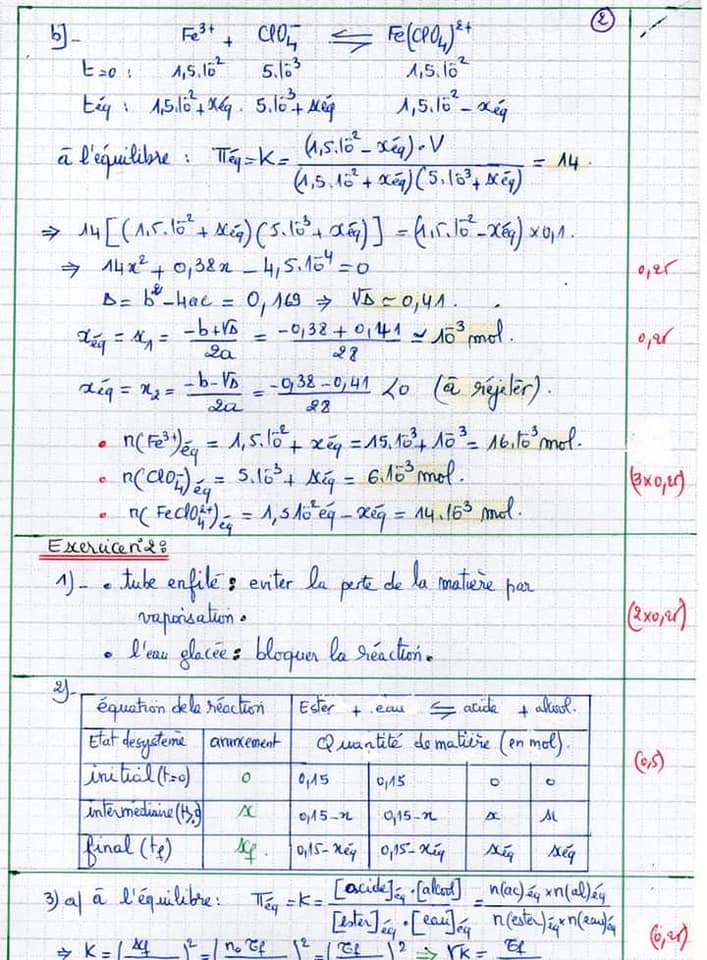 2
b]- Fe³⁺ + ClO₄⁻ ⇌ Fe(ClO₄)²⁺
t=0 : 1,5.10⁻² 5.10⁻³ 1,5.10⁻²
téq : 1,5.10⁻²+xéq . 5.10⁻³+xéq 1,5.10⁻²-xéq
à l'équilibre : Πéq=K= (1,5.10⁻²-xéq).V / (1,5.10⁻²+xéq)(5.10⁻³+xéq) = 14.
⇒ 14[(1,5.10⁻²+xéq)(5.10⁻³+xéq)] = (1,5.10⁻²-xéq)×0,1.
⇒ 14x² + 0,38x - 4,5.10⁻⁴=0 0,25
Δ= b²-4ac = 0,169 ⇒ √Δ ≃ 0,41.
xéq = x₁ = -b+√Δ / 2a = -0,38+0,41 / 28 ≃ 10⁻³ mol. 0,25
xéq = x₂ = -b-√Δ / 2a = -0,38-0,41 / 28 <0 (à rejeter).
• n(Fe³⁺)éq = 1,5.10⁻² + xéq = 15.10⁻³+10⁻³= 16.10⁻³ mol.
• n(ClO₄⁻)éq = 5.10⁻³ + xéq = 6.10⁻³ mol. (3×0,25)
• n(FeClO₄²⁺)éq = 1,510⁻²éq - xéq = 14.10⁻³ mol.
Exercice n°2:
1)- • tube enfilé : eviter la perte de la matière par
vaporisation. (2×0,25)
• l'eau glacée : bloquer la réaction.
2)-
équation de la réaction Ester + eau ⇌ acide + alcool.
Etat de systeme avancement Quantité de matière (en mol).
initial (t=0) 0 0,15 0,15 0 0 (0,5)
intermédiaire (t>0) x 0,15-x 0,15-x x x
final (tf) xf. 0,15-xéq 0,15-xéq xéq xéq
3) a) à l'équilibre : Πéq = K = [acide]éq.[alcool] / [ester]éq.[eau]éq = n(ac)éq×n(al)éq / n(ester)éq×n(eau)éq (0,25)
⇒ K = ( xf )² = ( n₀ τf )² = ( τf )² ⇒ √K = τf